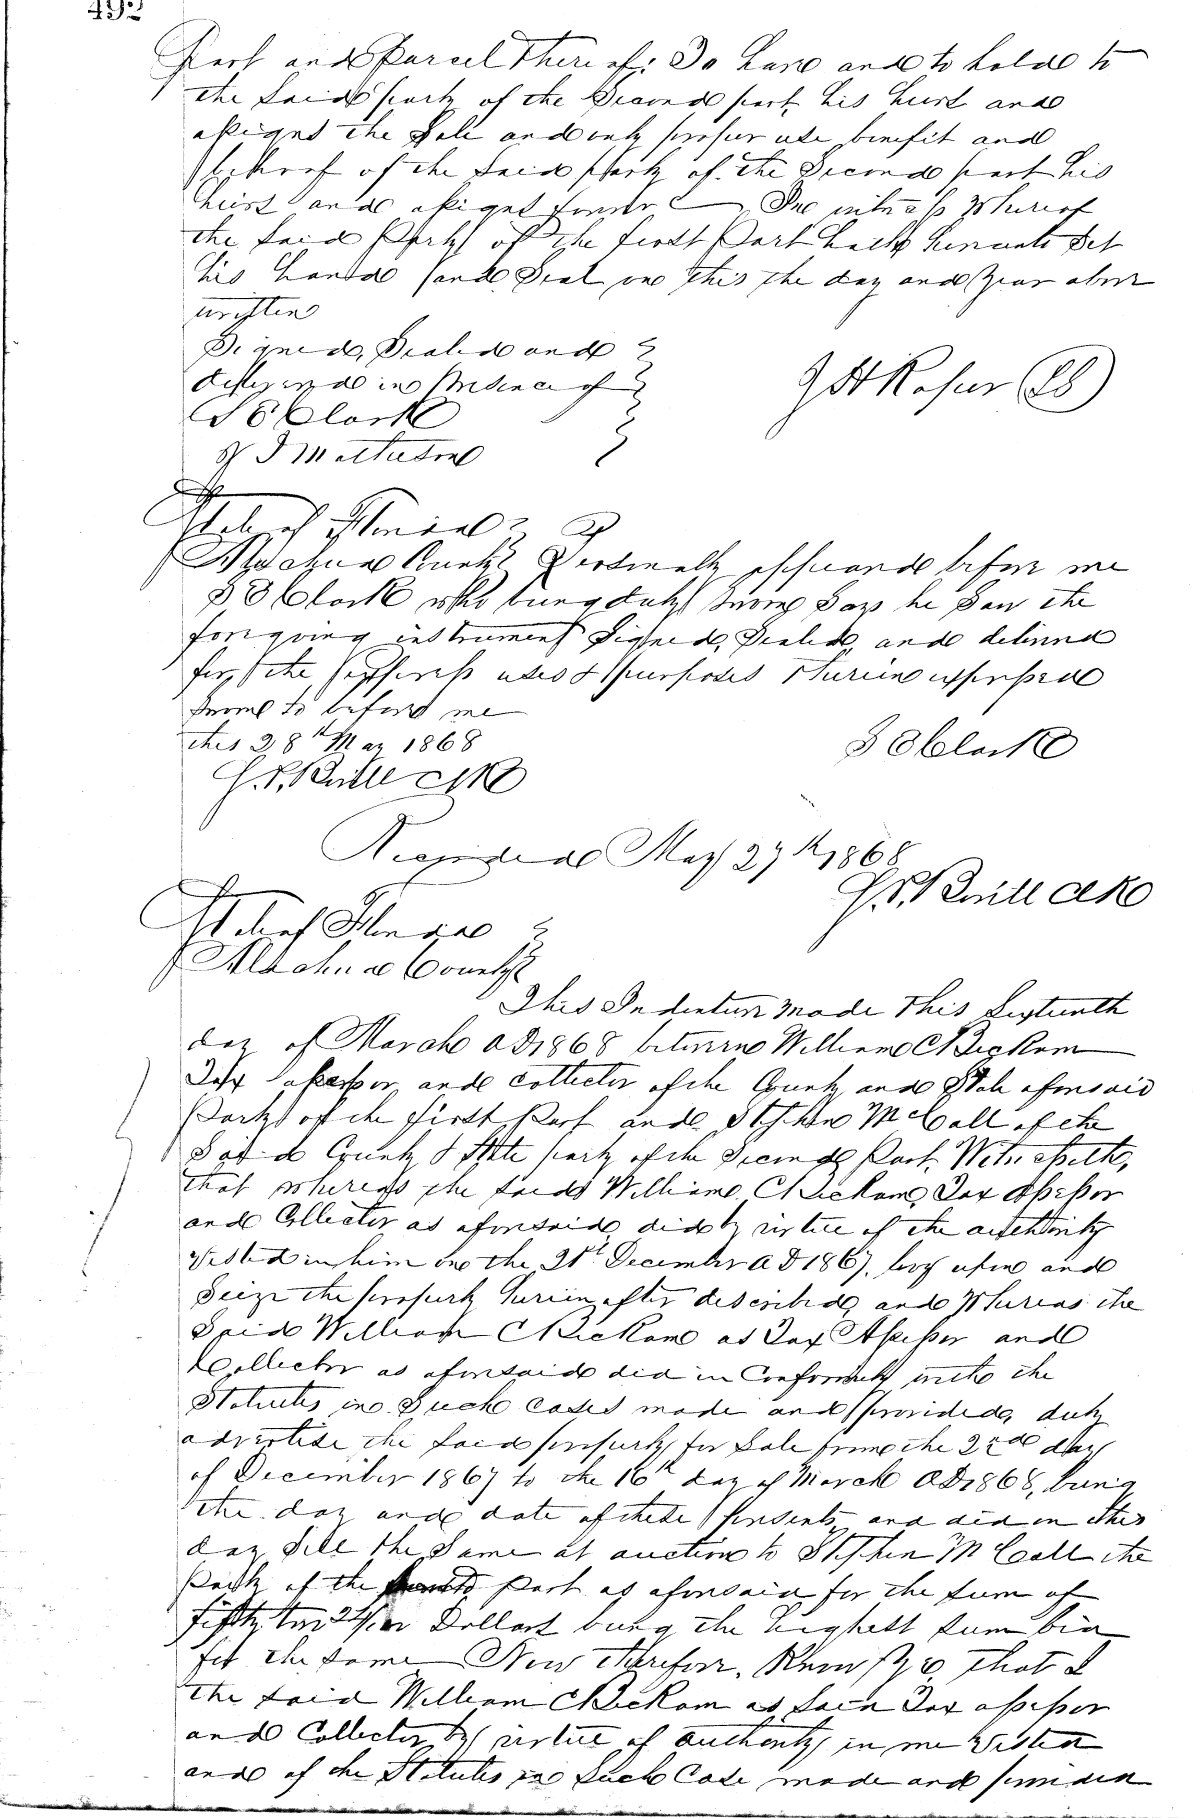 492
Part and Parcel thereof: To have and to hold to
the said party of the Second part his heirs and
assigns the Sole and only proper use benefit and
behoof of the said party of the Second part his
heirs and assigns forever In witness Whereof
the said Party of the first Part hath hereunto Set
his hand and Seal on this the day and Year above
written
Signed, Sealed and
delivered in Presence of
S E Clark
State of Florida
Alachua County Personally appeared before me
S E Clark who being duly Sworn Says he Saw the
foregoing instrument Signed, Sealed, and delivered
for the purposes uses & purposes therein expressed
Sworn to before me
this 28th May 1868
S E Clark
Clk
May 29th 1868
Clk
State of Florida
Alachua County
This Indenture made this Sixteenth
day of March AD 1868 between William C Beckam
Tax assessor and collector of the County and State aforesaid
Party of the first Part and Stephen McCall of the
Said County & State party of the Second Part, Witnesseth,
that whereas the said William C Beckam, Tax Assessor
and Collector as aforesaid, did by virtue of the authority
vested in him on the 21st December AD 1867, levy upon and
Seize the property herein after described, and Whereas the
Said William C Beckam as Tax Assessor and
Collector as aforesaid did in Conformity with the
Statutes in Such Cases made and provided, duly
advertise the said property for Sale from the 22nd day
of December 1867 to the 16th day of March AD 1868, being
the day and date of these presents, and did on this
day Sell the Same at auction to Stephen McCall the
Party of the Part as aforesaid for the Sum of
fifty two Dollars being the highest Sum bid
for the Same Now therefore, Know Ye, that I
the said William C Beckam as said Tax assessor
and Collector by virtue of authority in me Vested
and of the Statutes in Such Case made and provided